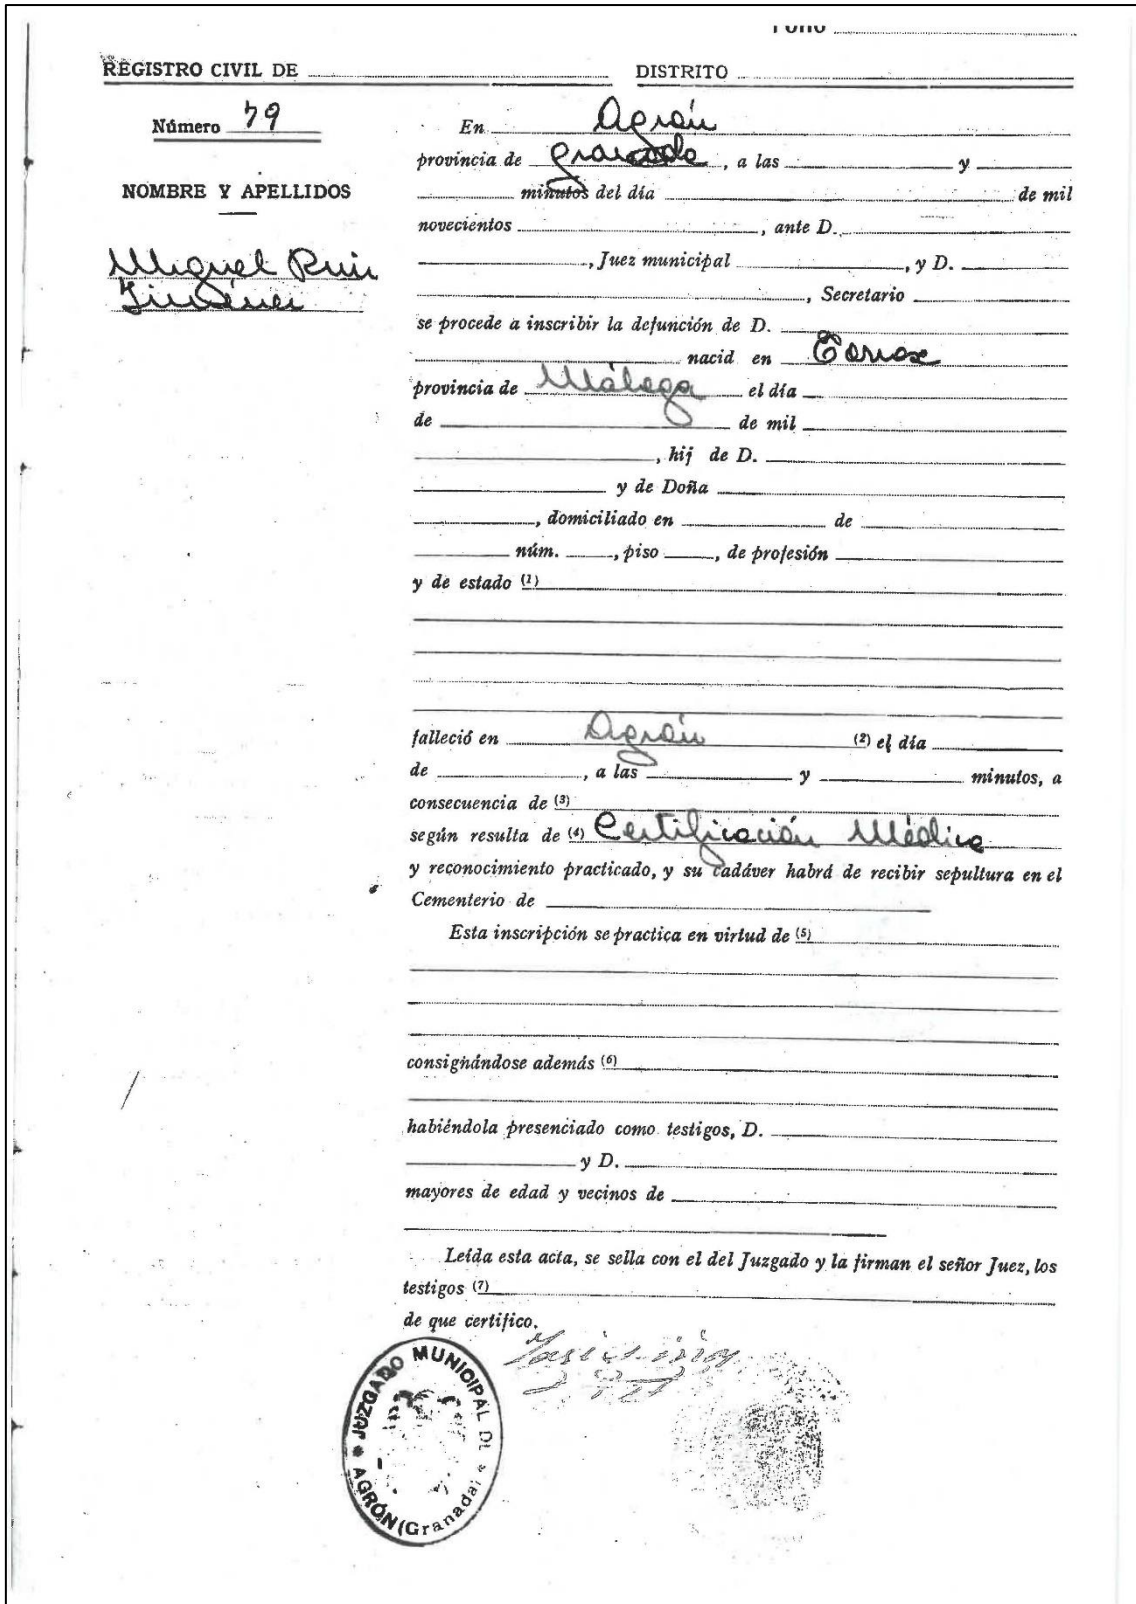 REGISTRO CIVIL DE DISTRITO
Número 79
NOMBRE Y APELLIDOS
Miguel Ruiz
Jiménez
En Agrón
provincia de Granada, a las y
minutos del día de mil
novecientos , ante D.
, Juez municipal , y D.
, Secretario
se procede a inscribir la defunción de D.
nacid en Torrox
provincia de Málaga el día
de de mil
, hij de D.
y de Doña
, domiciliado en de
núm. , piso , de profesión
y de estado (1)
falleció en Agrón (2) el día
de , a las y minutos, a
consecuencia de (3)
según resulta de (4) Certificación Médica
y reconocimiento practicado, y su cadáver habrá de recibir sepultura en el
Cementerio de
Esta inscripción se practica en virtud de (5)
consignándose además (6)
habiéndola presenciado como testigos, D.
y D.
mayores de edad y vecinos de
Leída esta acta, se sella con el del Juzgado y la firman el señor Juez, los
testigos (7)
de que certifico.
JUZGADO MUNICIPAL DE
AGRÓN (Granada)